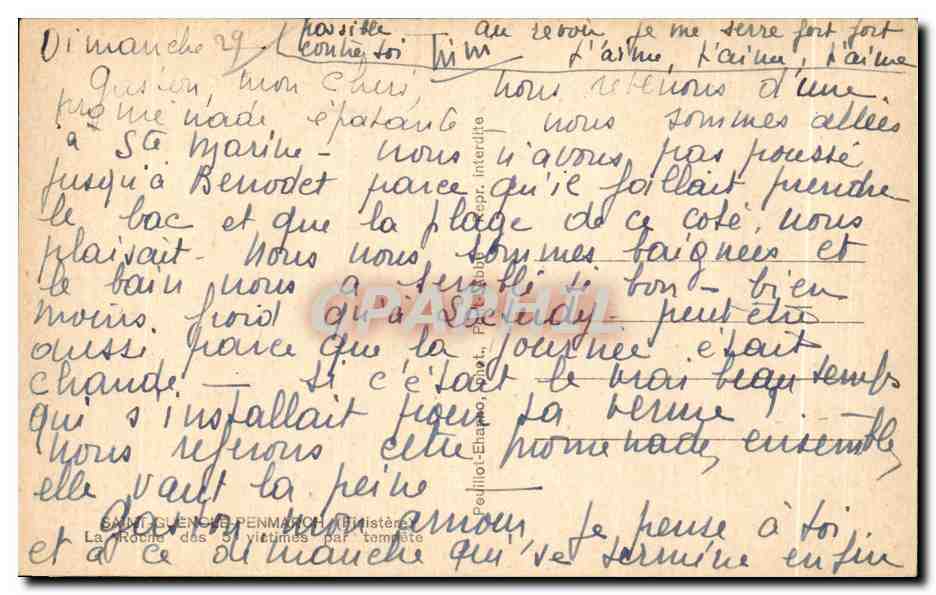 Dimanche 29
possible — au revoir, je me serre fort fort
contre toi t'aime, t'aime, t'aime
Gaston, mon chéri, nous revenons d'une
promenade épatante – nous sommes allées
à Ste Marine – nous n'avons pas poussé
jusqu'à Benodet parce qu'il fallait prendre
le bac et que la plage de ce coté nous
plaisait – Nous nous sommes baignées et
le bain nous a semblé si bon – bien
moins froid qu'à – peut être
aussi parce que la journée était
chaude — si c'était le vrai beau temps
qui s'installait pour ta venue !
nous referons cette promenade, ensemble,
elle vaut la peine —
Gaston, mon amour, je pense à toi
et à ce dimanche qui se termine enfin
SAINT-GUENOLE-PENMARCH (Finistère)
La Roche des 5 victimes par tempête
CPARHIL